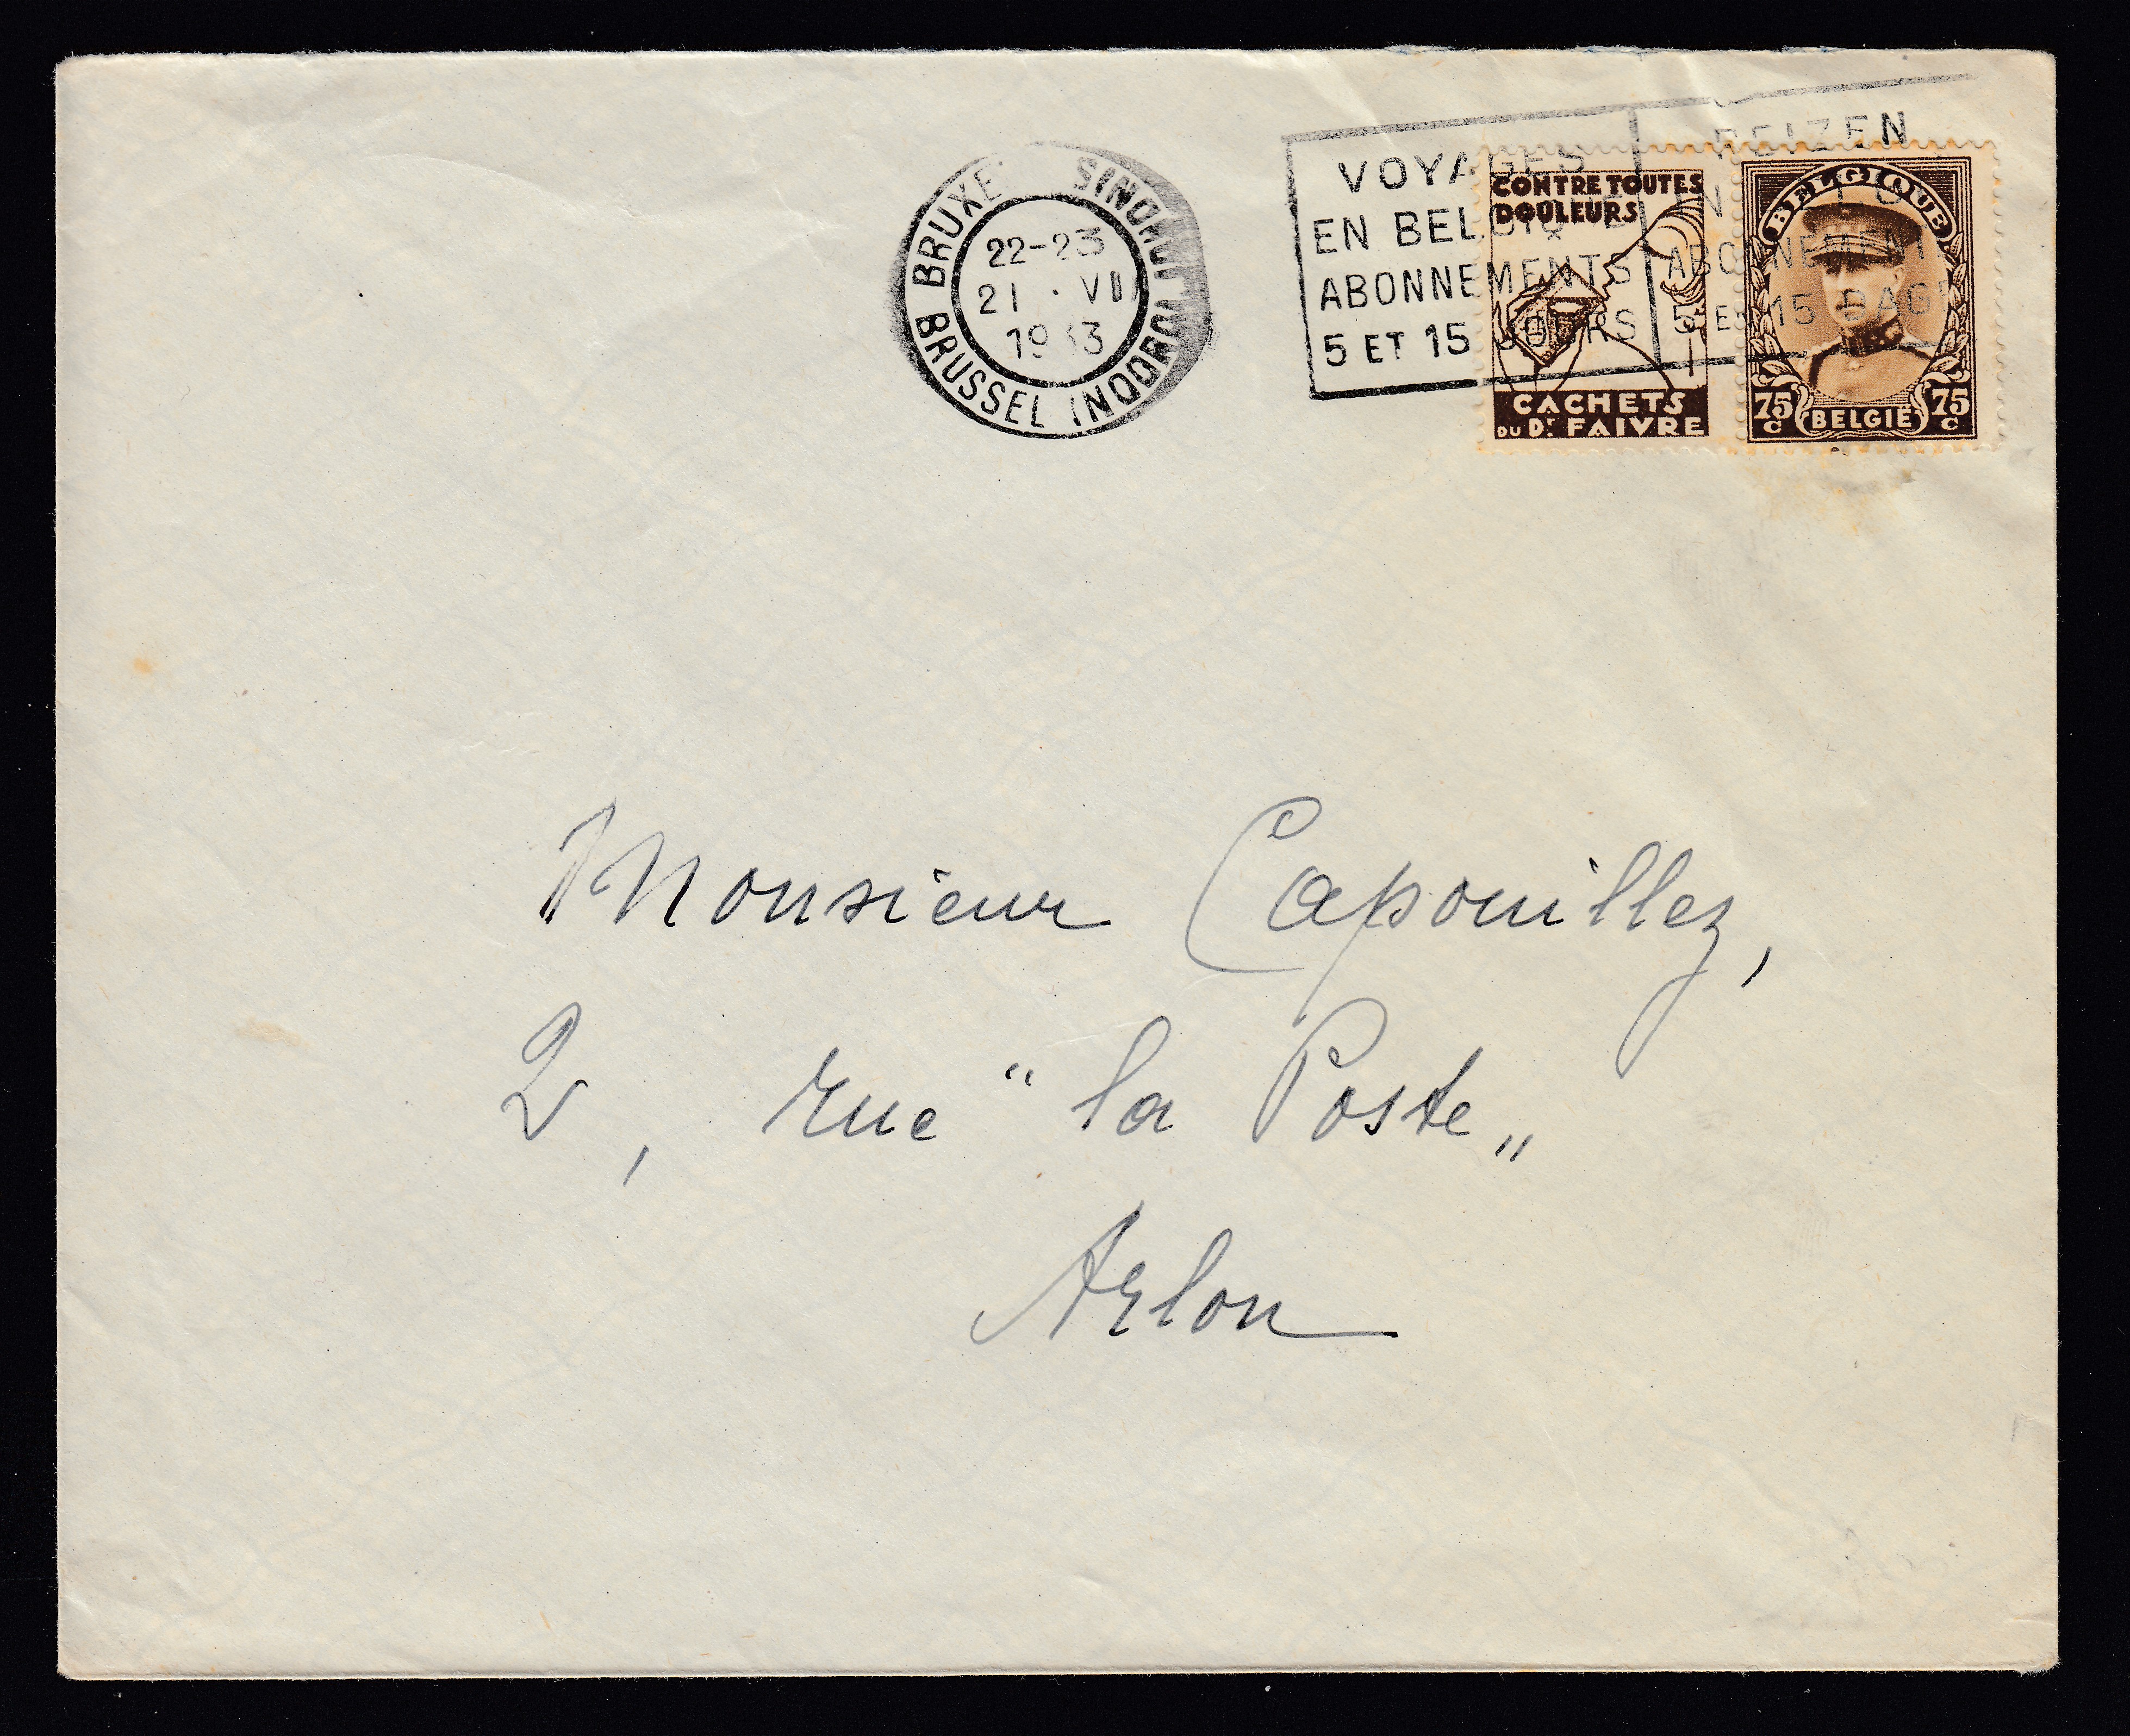 22-23
21 · VII
1933
BRUSSEL (NOORD)
VOYAGES
EN BELGIQUE
ABONNEMENTS
5 ET 15 JOURS
REIZEN
ABONNEMENT
5 EN 15 DAG
CONTRE TOUTES
DOULEURS
CACHETS
DU Dr FAIVRE
BELGIQUE
75 c BELGIË 75 c
Monsieur Capouillez,
2, rue "la Poste„
Arlon